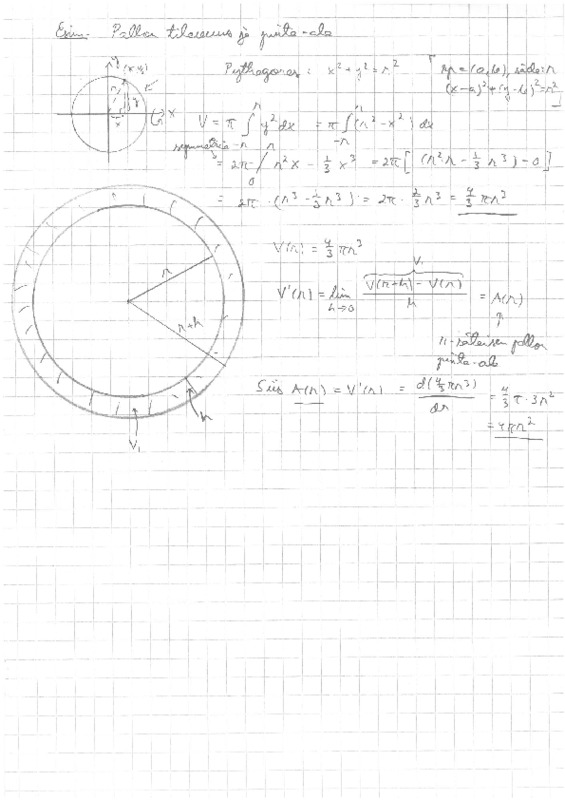 Esim. Pallon tilavuus ja pinta-ala
y
(x,y)
r
y
x
x
Pythagoras: x² + y² = r²
kp = (a,b), säde: r
(x-a)² + (y-b)² = r²
V = π ∫_{-r}^{r} y² dx = π ∫_{-r}^{r} (r² - x²) dx
symmetria
= 2π /_{0}^{r} r²x - 1/3 x³ = 2π [ (r²r - 1/3 r³) - 0 ]
= 2π · (r³ - 1/3 r³) = 2π · 2/3 r³ = 4/3 πr³
r
r+h
h
V₁
V(r) = 4/3 πr³
V₁
V'(r) = lim_{h→0} (V(r+h) - V(r))/h = A(r)
r-säteisen pallon
pinta-ala
Siis A(r) = V'(r) = d(4/3 πr³)/dr = 4/3 π · 3r²
= 4πr²